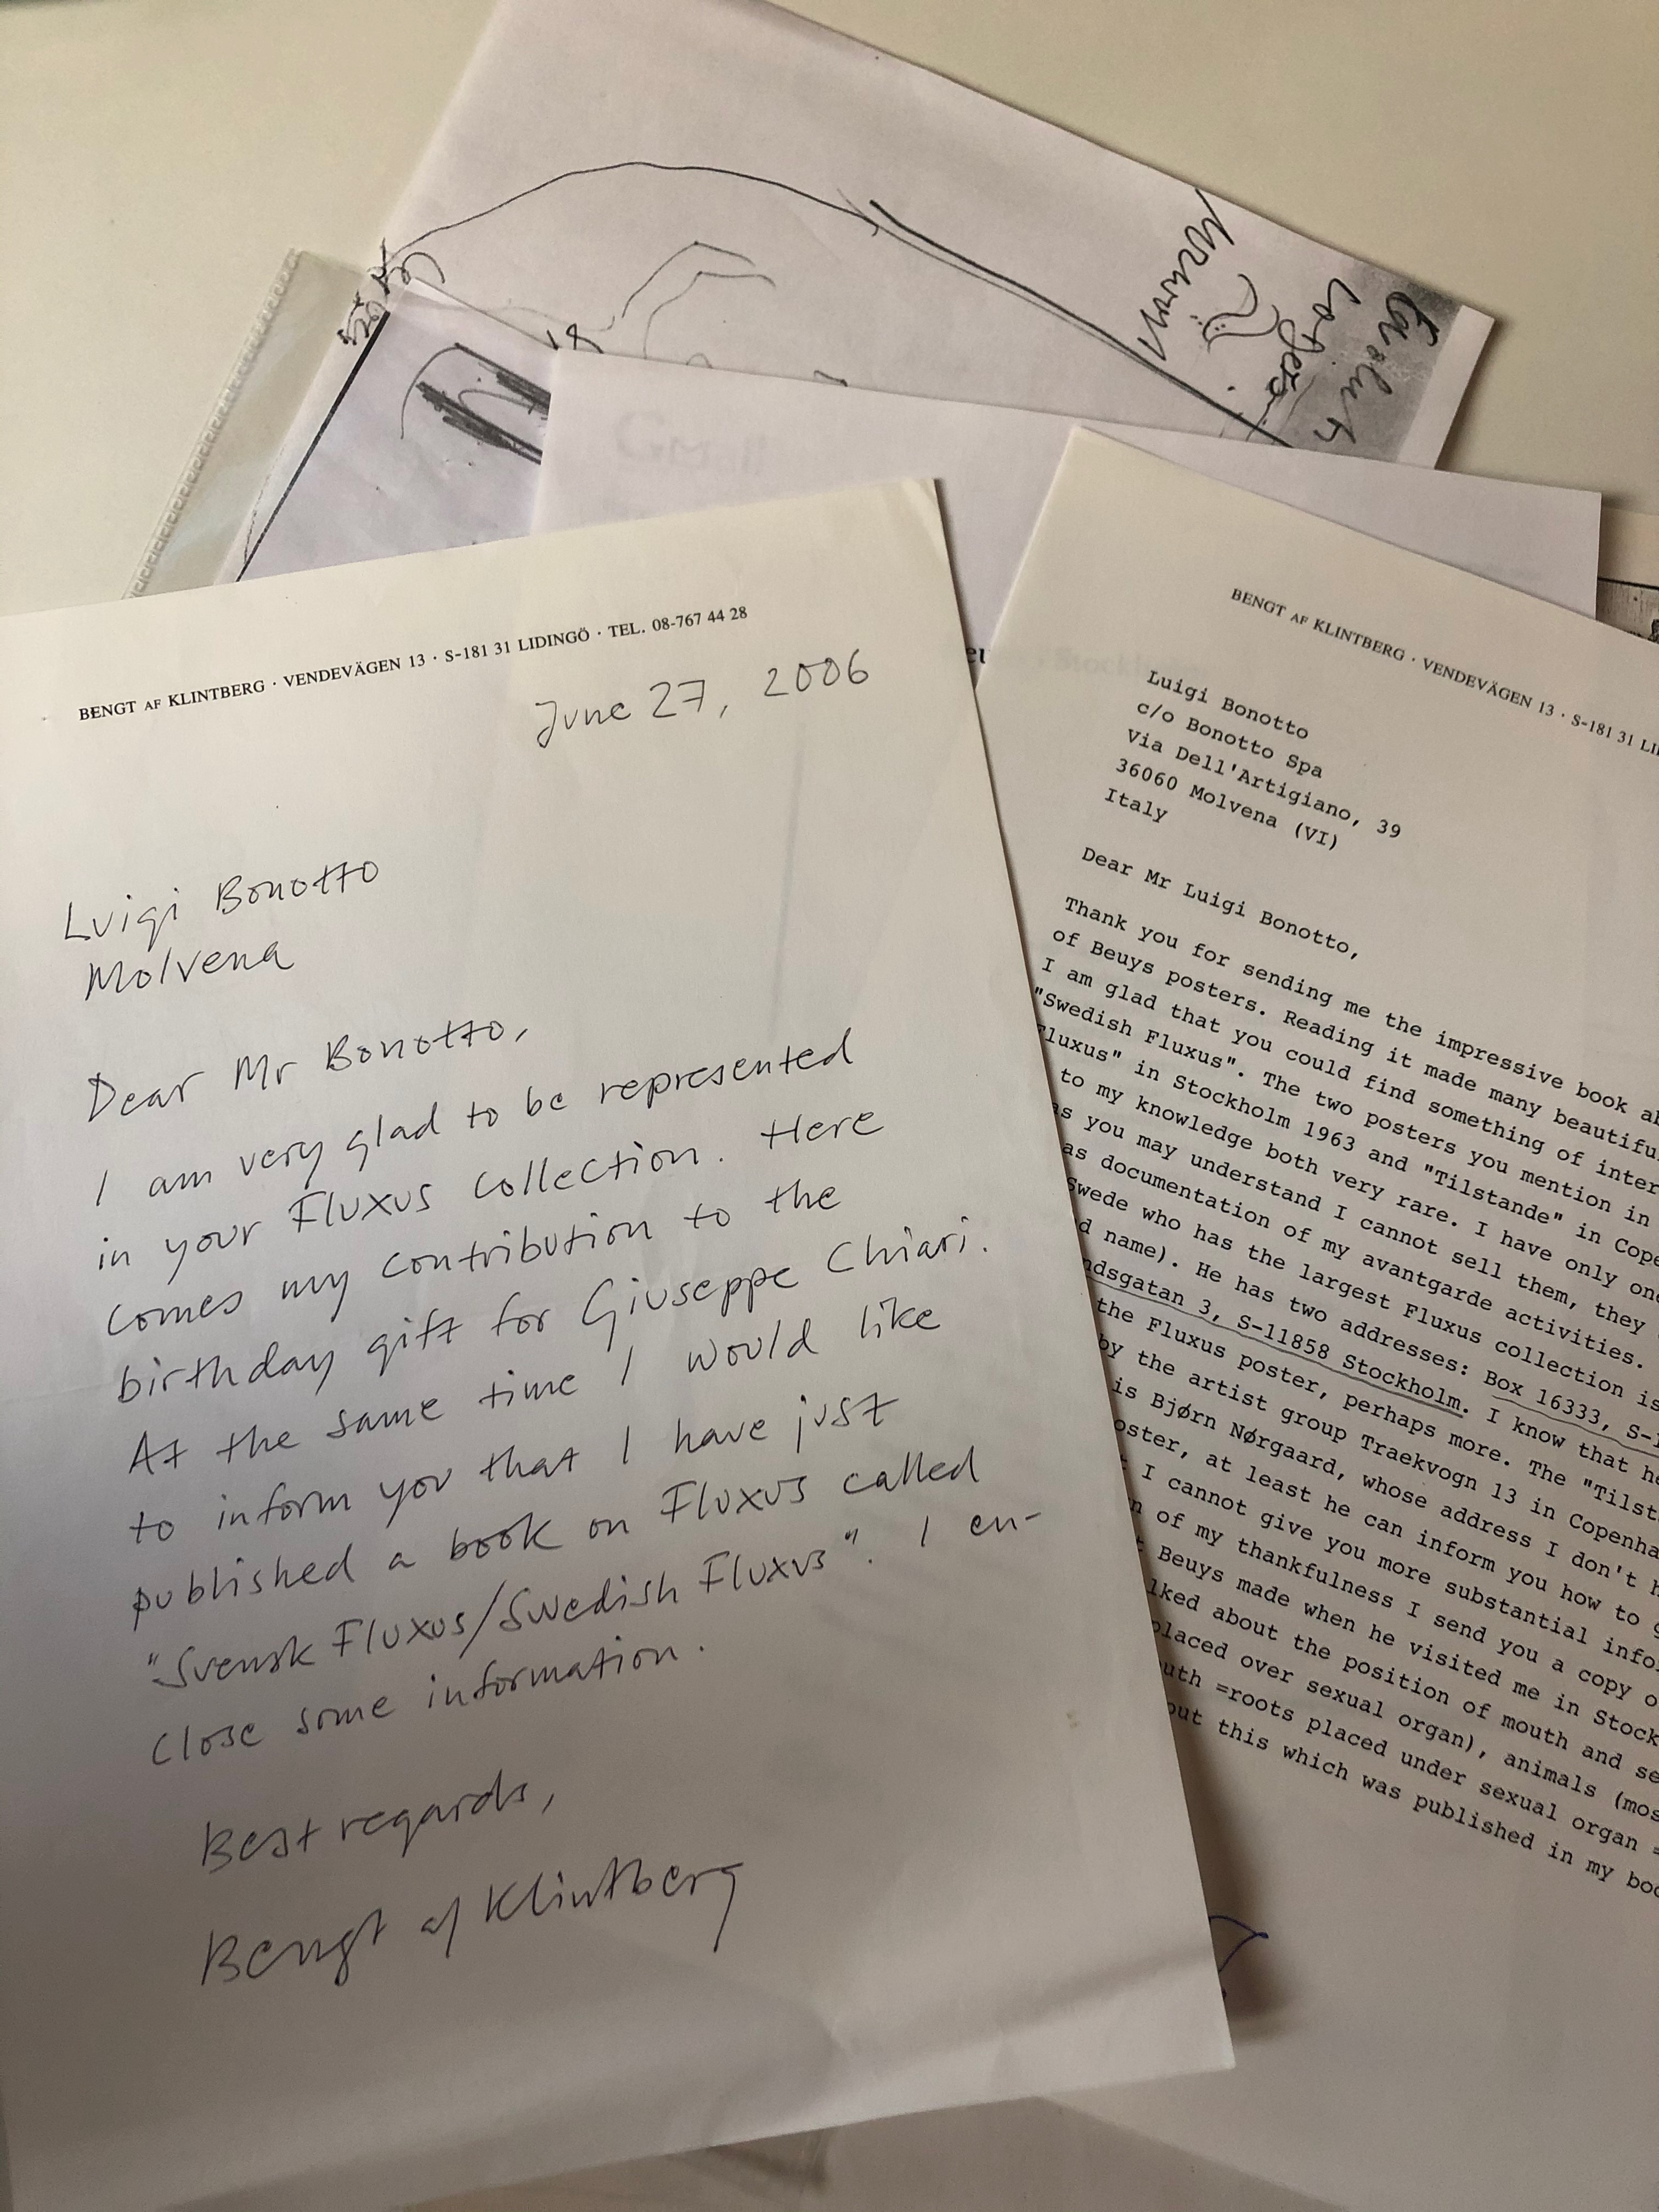 BENGT AF KLINTBERG · VENDEVÄGEN 13 · S-181 31 LIDINGÖ · TEL. 08-767 44 28
June 27, 2006
Luigi Bonotto
Molvena
Dear Mr Bonotto,
I am very glad to be represented
in your Fluxus collection. Here
comes my contribution to the
birthday gift for Giuseppe Chiari.
At the same time I would like
to inform you that I have just
published a book on Fluxus called
"Svensk Fluxus/Swedish Fluxus". I en-
close some information.
Best regards,
Bengt af Klintberg
Gmail
BENGT AF KLINTBERG · VENDEVÄGEN 13 · S-181 31 LI
Luigi Bonotto
c/o Bonotto Spa
Via Dell'Artigiano, 39
36060 Molvena (VI)
Italy
Dear Mr Luigi Bonotto,
Thank you for sending me the impressive book ab
of Beuys posters. Reading it made many beautifu
I am glad that you could find something of inter
"Swedish Fluxus". The two posters you mention in
Fluxus" in Stockholm 1963 and "Tilstande" in Cope
to my knowledge both very rare. I have only one
as you may understand I cannot sell them, they
as documentation of my avantgarde activities.
Swede who has the largest Fluxus collection is
d name). He has two addresses: Box 16333, S-1
ndsgatan 3, S-11858 Stockholm. I know that he
the Fluxus poster, perhaps more. The "Tilst
by the artist group Traekvogn 13 in Copenha
is Bjørn Nørgaard, whose address I don't h
oster, at least he can inform you how to g
t I cannot give you more substantial infor
n of my thankfulness I send you a copy o
t Beuys made when he visited me in Stock
lked about the position of mouth and se
placed over sexual organ), animals (mos
uth =roots placed under sexual organ =
out this which was published in my boo